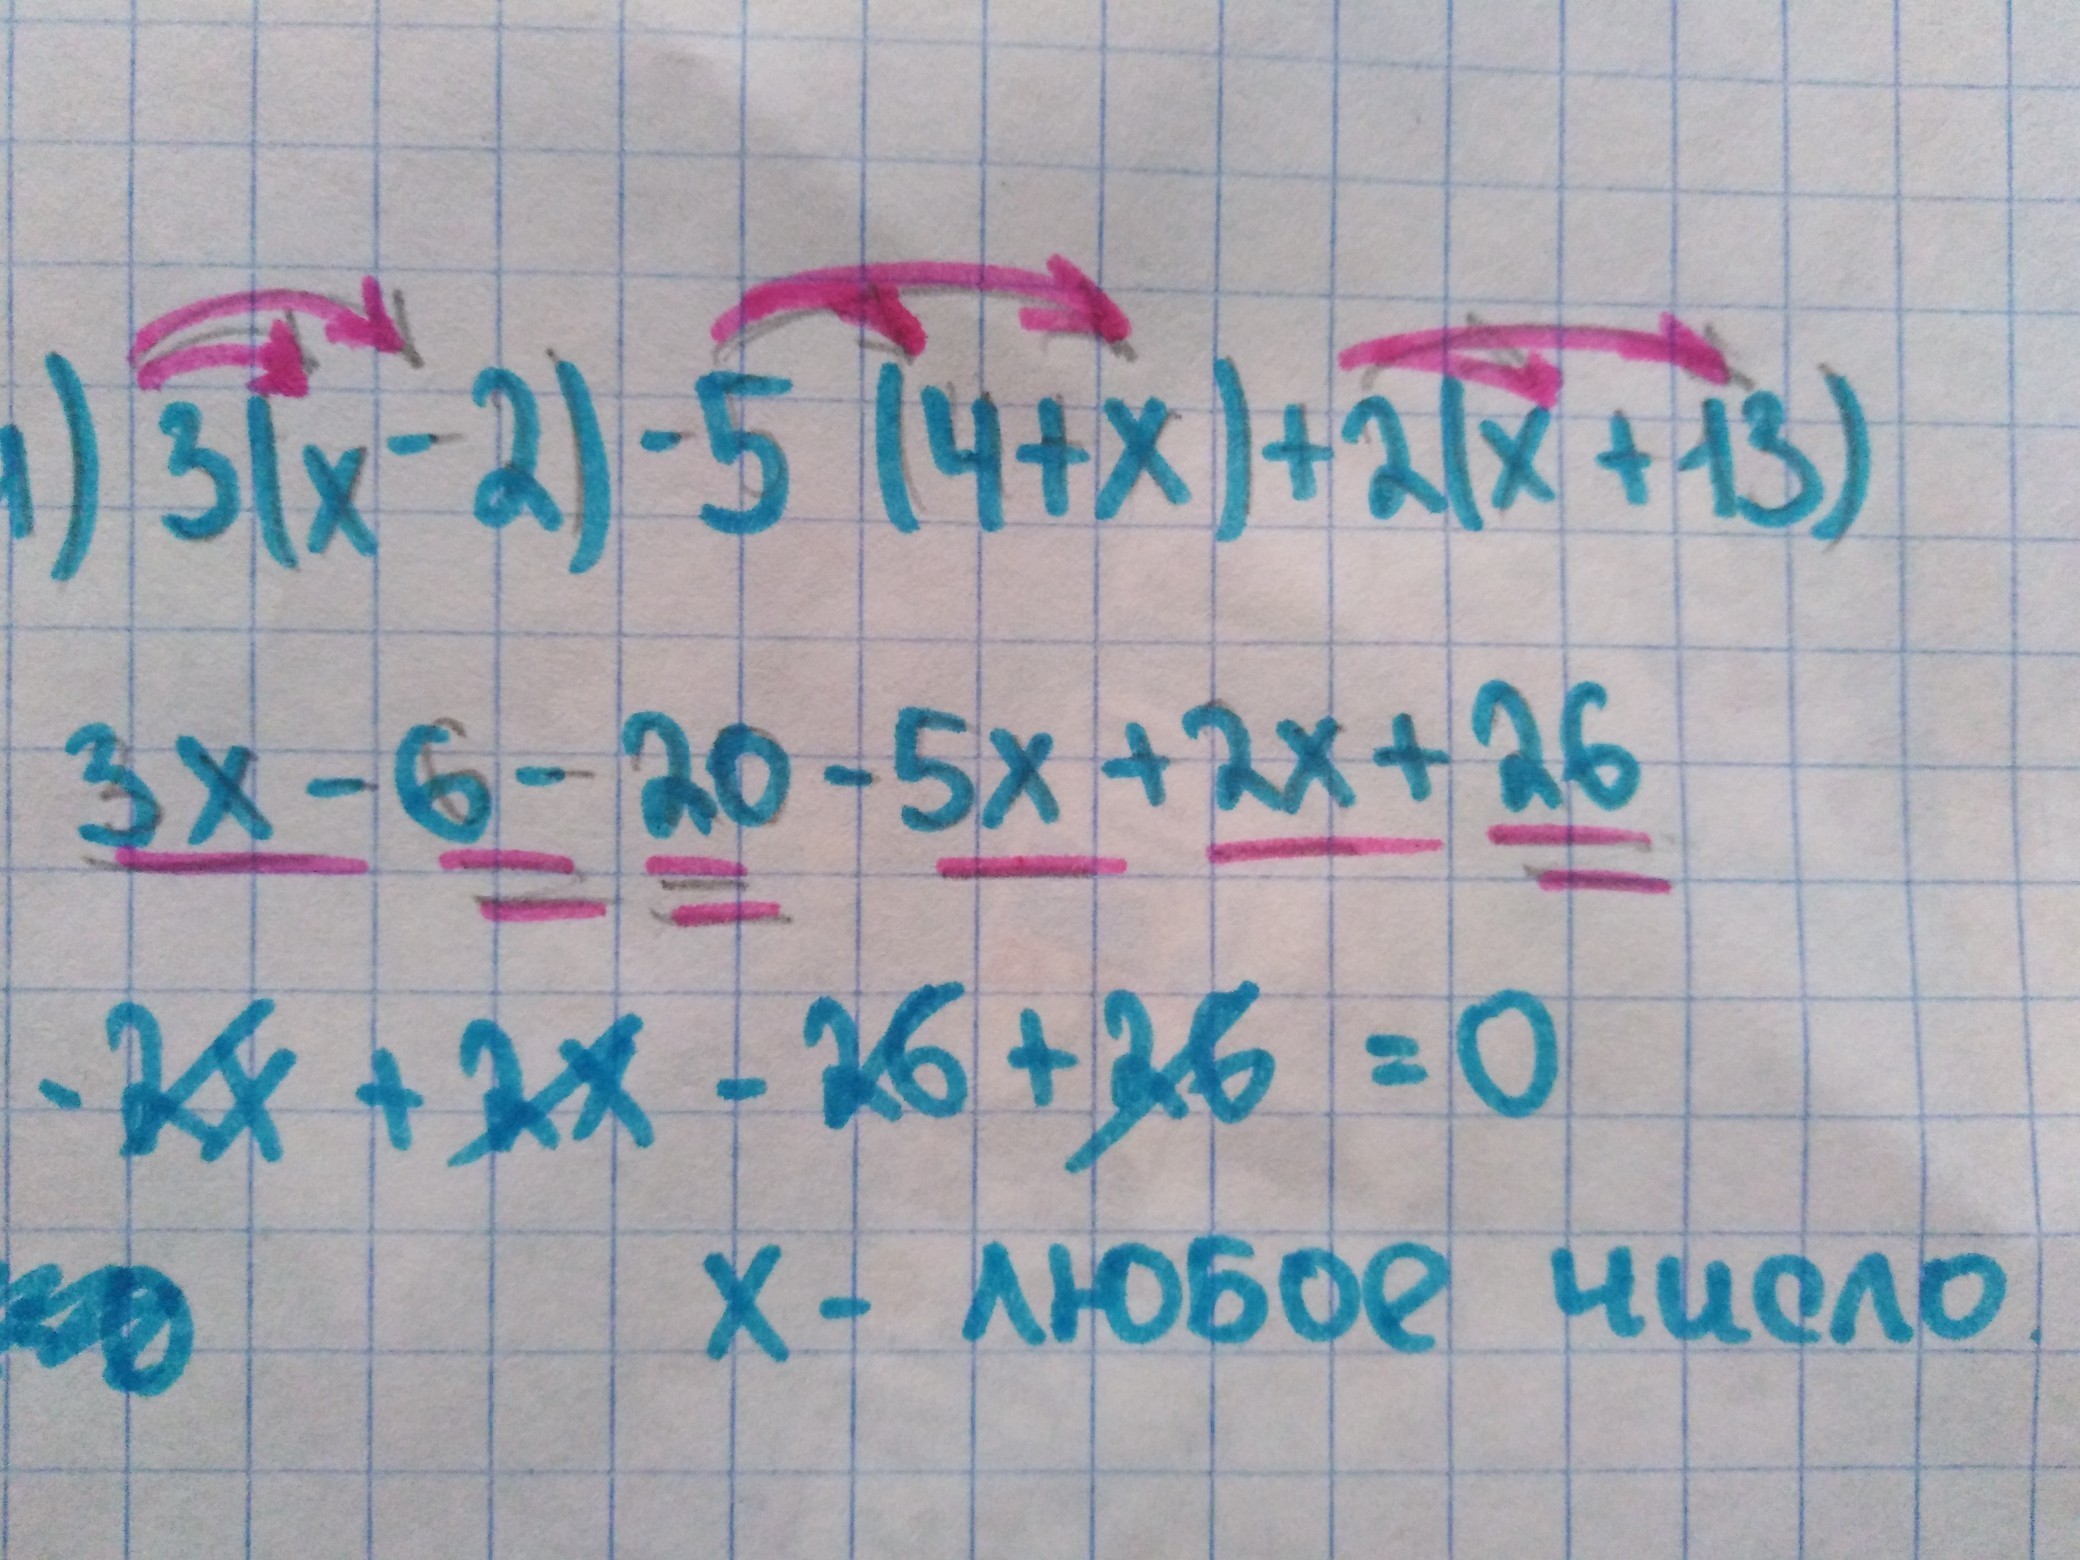 1) 3(x - 2) - 5 (4 + x) + 2(x + 13)
3x - 6 - 20 - 5x + 2x + 26
- 2x + 2x - 26 + 26 = 0
x - любое число.